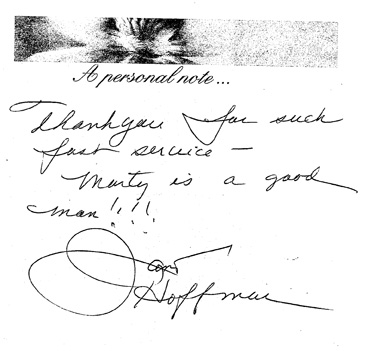 A personal note...
Thank you for such
fast service –
Marty is a good
man!!!!
Hoffman